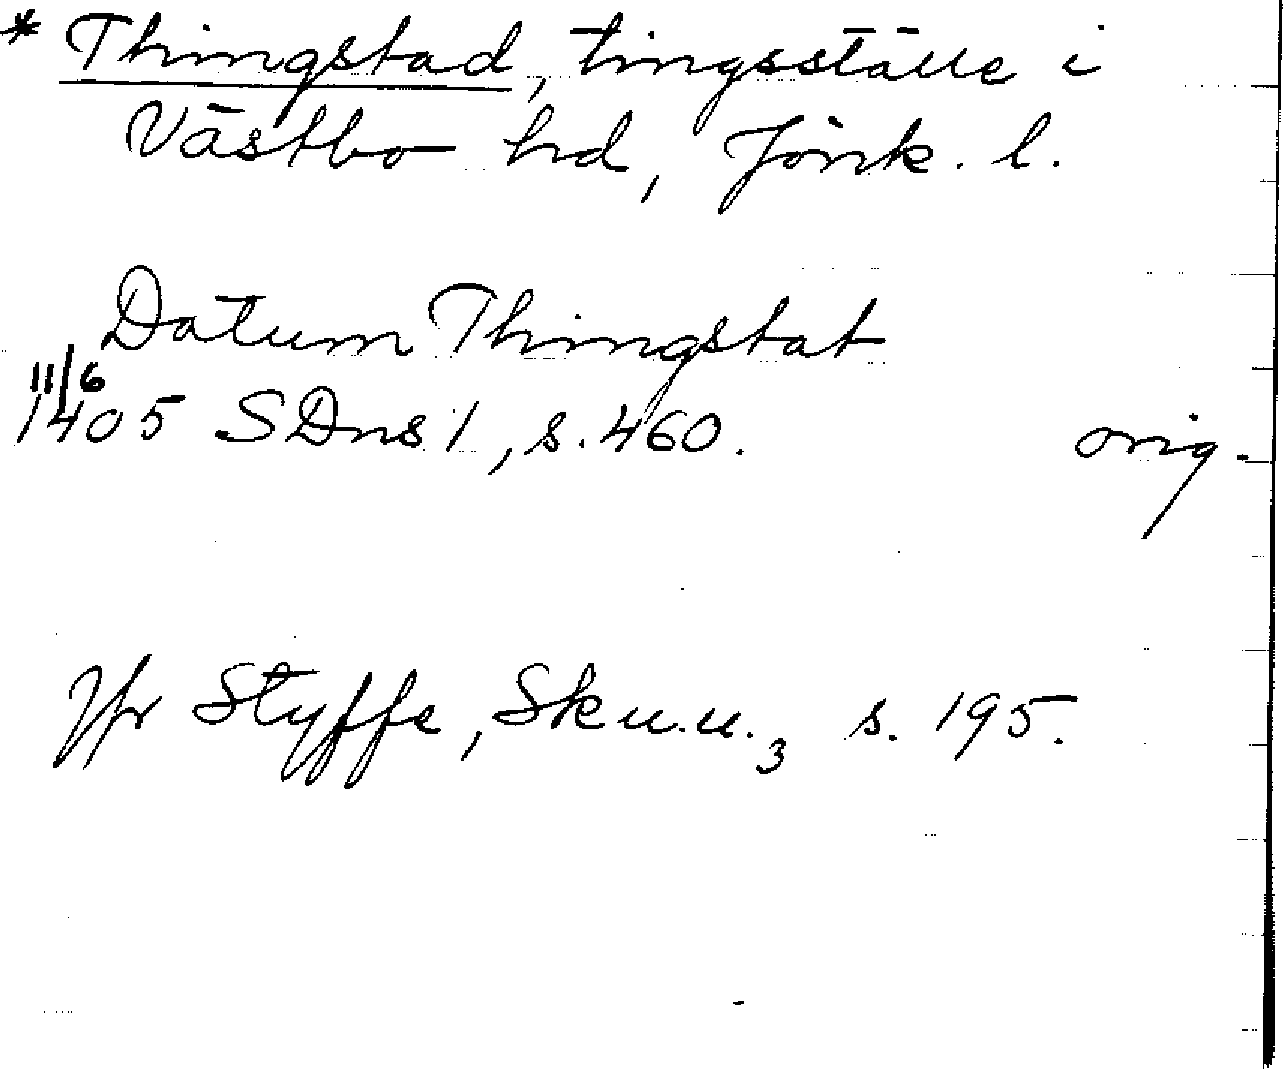 * Thingstad, tingsställe i
Västbo hd, Jönk. l.
Datum Thingstat
11/6
1405 SDns 1, s. 460. orig.
Jfr Styffe, Sk u.u. 3 s. 195.